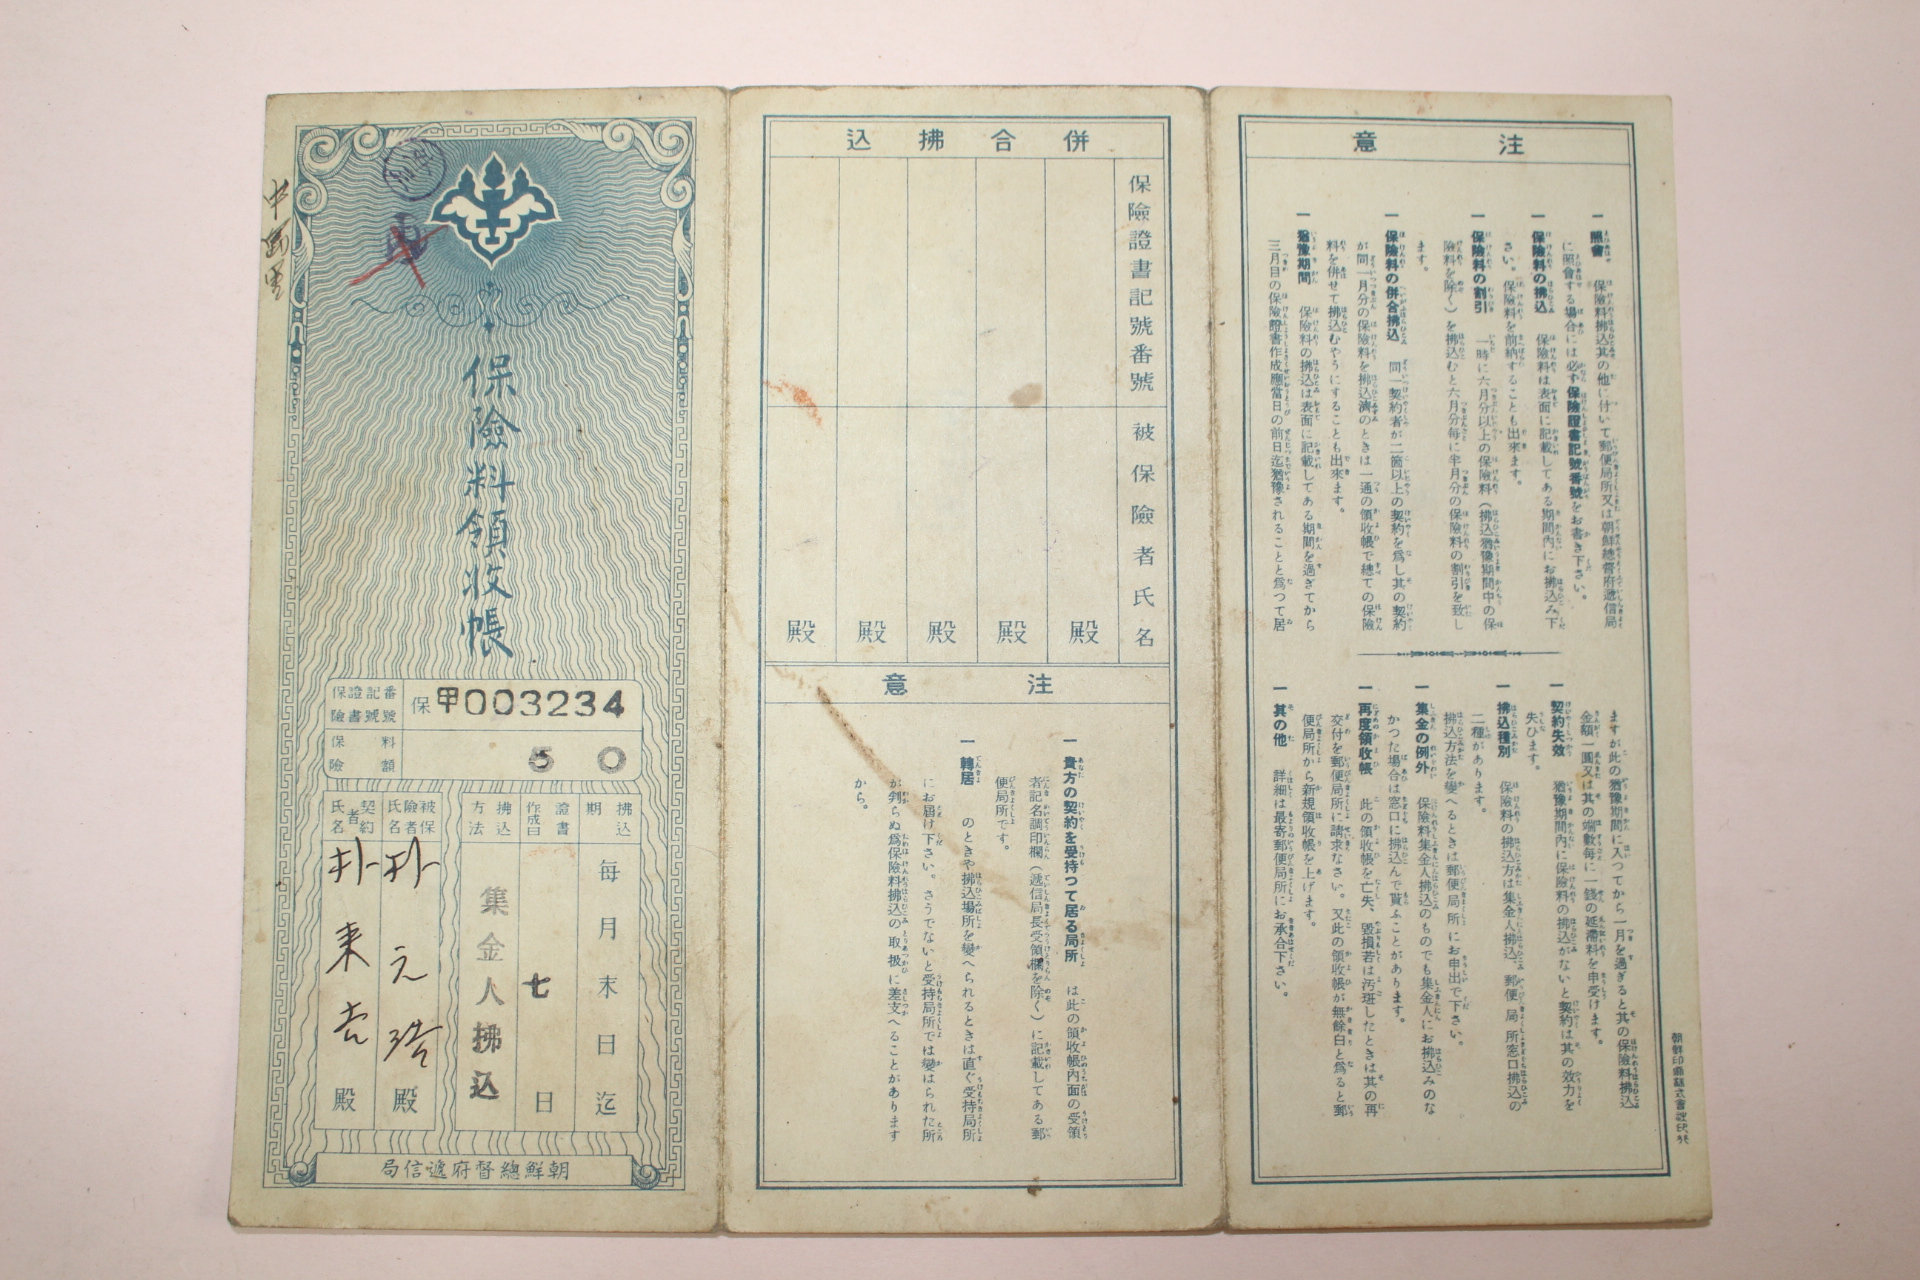 保險料領收帳
保險證書記號番號
保甲003234
保險料額
50
拂込期
每月末日迄
證書作成日
七日
拂込方法
集金人拂込
被保險者氏名
朴元
殿
契約者氏名
朴来
殿
朝鮮總督府遞信局
併合拂込
保險證書記號番號
被保險者氏名
殿
殿
殿
殿
殿
注意
一 貴方の契約を受持つて居る局所 は此の領收帳内面の受領
者記名調印欄(遞信局長受領欄を除く)に記載してある郵
便局所です。
一 轉居 のときや拂込場所を變へられるときは直ぐ受持局所
にお屆け下さい。さうでないと受持局所では變はられた所
が判らぬ爲保險料拂込の取扱に差支へることがあります
から。
注意
一 照會 保險料拂込其の他に付いて郵便局所又は朝鮮總督府遞信局
に照會する場合には必ず保險證書記號番號をお書き下さい。
一 保險料の拂込 保險料は表面に記載してある期間内にお拂込み下
さい。保險料を前納することも出來ます。
一 保險料の割引 一時に六月分以上の保險料(拂込猶豫期間中の保
險料を除く)を拂込むと六月分每に半月分の保險料の割引を致し
ます。
一 保險料の併合拂込 同一契約者が二箇以上の契約を爲し其の契約
が同一月分の保險料を拂込濟のときは一通の領收帳で總ての保險
料を併せて拂込むやうにすることも出來ます。
一 猶豫期間 保險料の拂込は表面に記載してある期間を過ぎてから
三月目の保險證書作成應當日の前日迄猶豫されることと爲つて居
ますが此の猶豫期間に入つてから一月を過ぎると其の保險料拂込
金額一圓又は其の端數每に一錢の延滯料を申受けます。
一 契約失效 猶豫期間内に保險料の拂込がないと契約は其の效力を
失ひます。
一 拂込種別 保險料の拂込方は集金人拂込、郵便局所窓口拂込の
二種があります。
拂込方法を變へるときは郵便局所にお申出で下さい。
一 集金の例外 保險料集金人拂込のものでも集金人にお拂込みのな
かつた場合は窓口に拂込んで貰ふことがあります。
一 再度領收帳 此の領收帳を亡失、毀損若は汚斑したときは其の再
交付を郵便局所に請求なさい。又此の領收帳が無餘白と爲ると郵
便局所から新規領收帳を上げます。
一 其の他 詳細は最寄郵便局所にお承合下さい。
朝鮮印刷株式會社印行